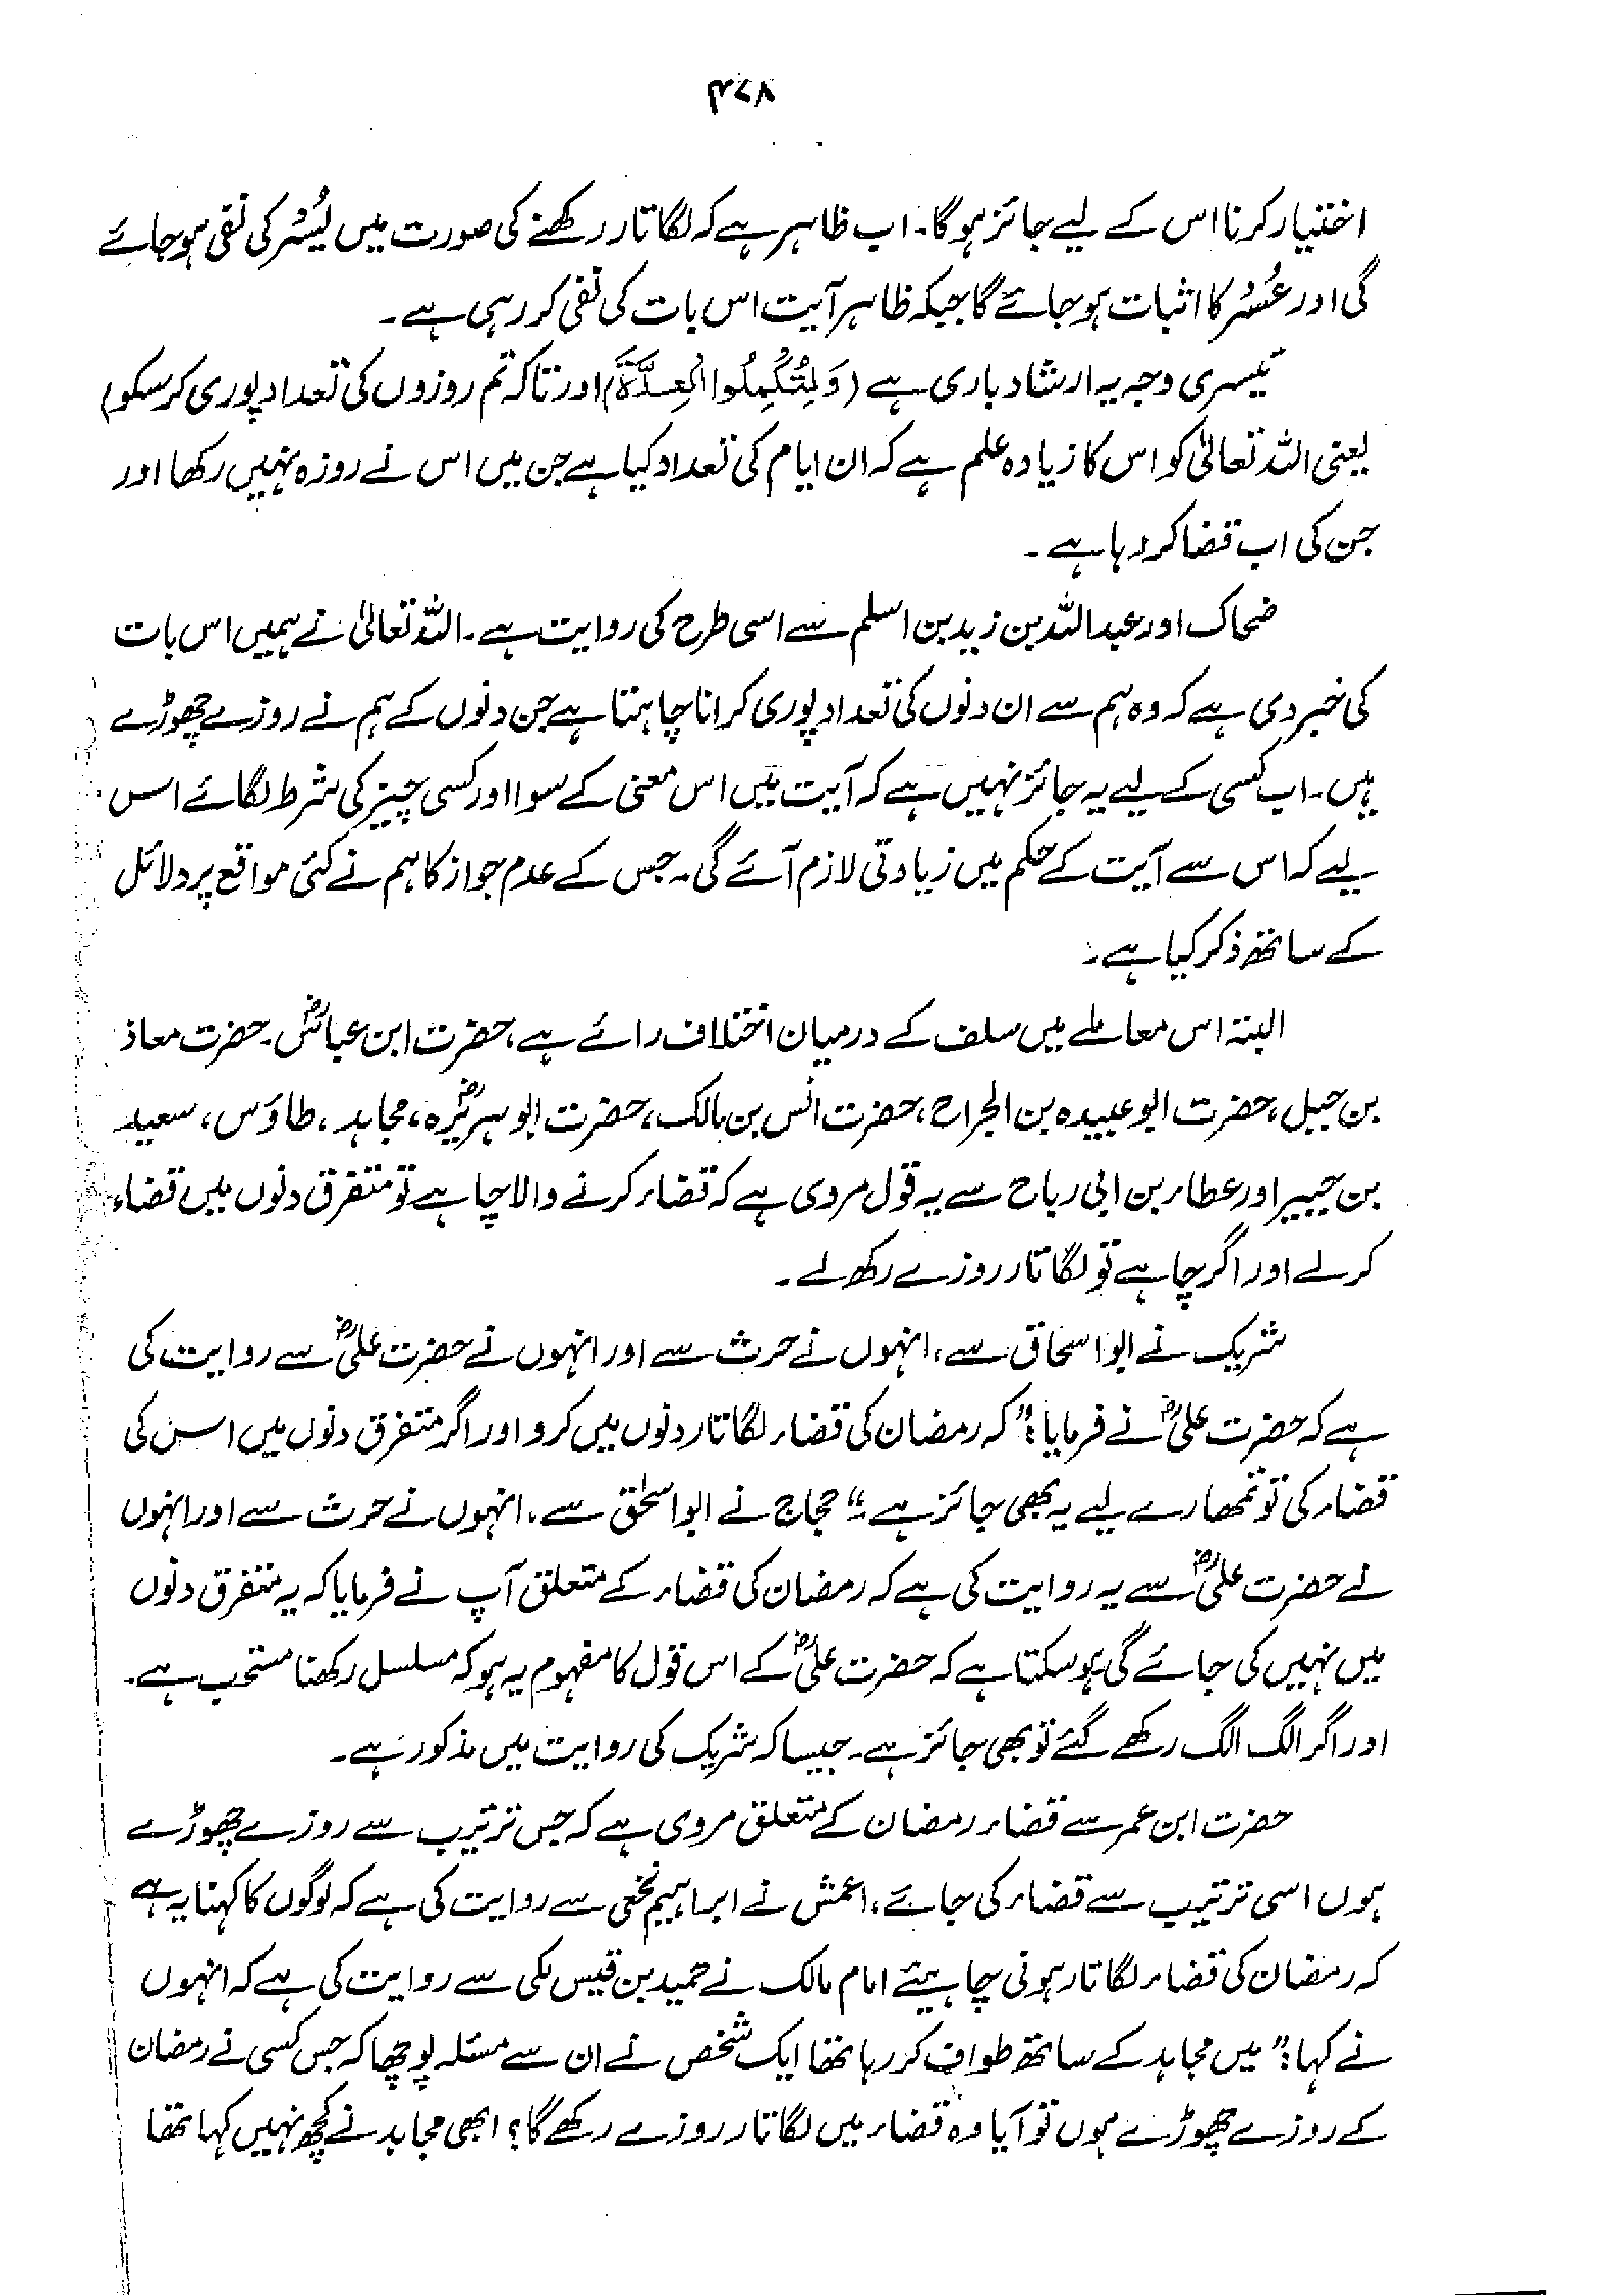 ۴۷۸
اختیار کرنا اس کے لیے جائز ہوگا۔ اب ظاہر ہے کہ لگاتار رکھنے کی صورت میں یُسْر کی نفی ہو جائے
گی اور عُسْر کا اثبات ہو جائے گا جبکہ ظاہر آیت اس بات کی نفی کر رہی ہے۔
تیسری وجہ یہ ارشاد باری ہے (وَلِتُكْمِلُوا الْعِدَّةَ) اور تاکہ تم روزوں کی تعداد پوری کر سکو)
یعنی اللہ تعالیٰ کو اس کا زیادہ علم ہے کہ ان ایام کی تعداد کیا ہے جن میں اس نے روزہ نہیں رکھا اور
جن کی اب قضا کر رہا ہے۔
ضحاک اور عبداللہ بن زید بن اسلم سے اسی طرح کی روایت ہے۔ اللہ تعالیٰ نے ہمیں اس بات
کی خبر دی ہے کہ وہ ہم سے ان دنوں کی تعداد پوری کرانا چاہتا ہے جن دنوں کے ہم نے روزے چھوڑے
ہیں۔ اب کسی کے لیے یہ جائز نہیں ہے کہ آیت میں اس معنی کے سوا اور کسی چیز کی شرط لگائے اس
لیے کہ اس سے آیت کے حکم میں زیادتی لازم آئے گی۔ جس کے عدم جواز کا ہم نے کئی مواقع پر دلائل
کے ساتھ ذکر کیا ہے۔
البتہ اس معاملے میں سلف کے درمیان اختلاف رائے ہے، حضرت ابن عباسؓ۔ حضرت معاذ
بن جبل، حضرت ابو عبیدہ بن الجراح، حضرت انس بن مالک، حضرت ابو ہریرہؓ، مجاہد، طاؤس، سعید
بن جبیر اور عطاء بن ابی رباح سے یہ قول مروی ہے کہ قضاء کرنے والا چاہے تو متفرق دنوں میں قضاء
کرلے اور اگر چاہے تو لگاتار روزے رکھ لے۔
شریک نے ابو اسحاق سے، انہوں نے حرث سے اور انہوں نے حضرت علیؓ سے روایت کی
ہے کہ حضرت علیؓ نے فرمایا:" کہ رمضان کی قضاء لگاتار دنوں میں کرو اور اگر متفرق دنوں میں اس کی
قضاء کی تو تمھارے لیے یہ بھی جائز ہے۔" حجاج نے ابو اسحٰق سے، انہوں نے حرث سے اور انہوں
نے حضرت علیؓ سے یہ روایت کی ہے کہ رمضان کی قضاء کے متعلق آپ نے فرمایا کہ یہ متفرق دنوں
میں نہیں کی جائے گی ہو سکتا ہے کہ حضرت علیؓ کے اس قول کا مفہوم یہ ہو کہ مسلسل رکھنا مستحب ہے۔
اور اگر الگ الگ رکھے گئے تو بھی جائز ہے۔ جیسا کہ شریک کی روایت میں مذکور ہے۔
حضرت ابن عمر سے قضاء رمضان کے متعلق مروی ہے کہ جس ترتیب سے روزے چھوڑے
ہوں اسی ترتیب سے قضاء کی جائے، اعمش نے ابراہیم نخعی سے روایت کی ہے کہ لوگوں کا کہنا یہ ہے
کہ رمضان کی قضاء لگاتار ہونی چاہیئے امام مالک نے حمید بن قیس مکی سے روایت کی ہے کہ انہوں
نے کہا:" میں مجاہد کے ساتھ طواف کر رہا تھا ایک شخص نے ان سے مسئلہ پوچھا کہ جس کسی نے رمضان
کے روزے چھوڑے ہوں تو آیا وہ قضاء میں لگاتار روزے رکھے گا؟ ابھی مجاہد نے کچھ نہیں کہا تھا